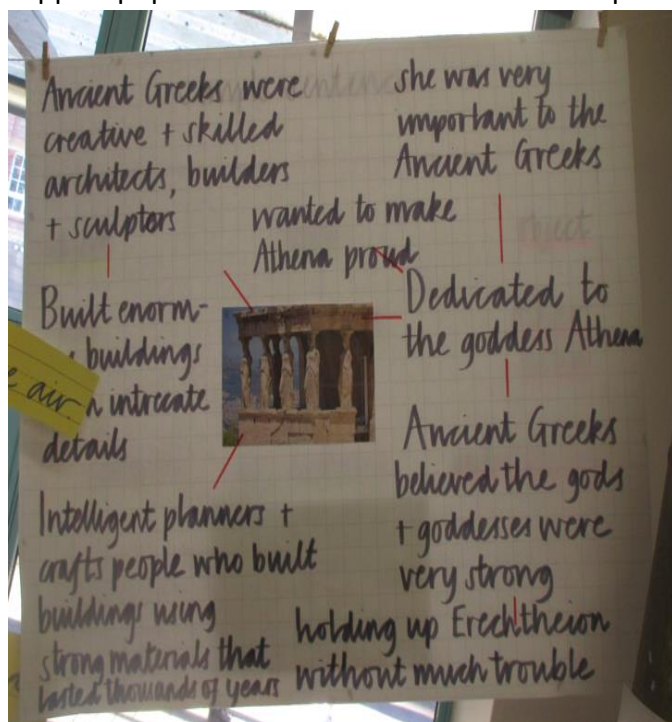 Ancient Greeks were
creative + skilled
architects, builders
+ sculptors
she was very
important to the
Ancient Greeks
wanted to make
Athena proud
Built enorm-
buildings
intrecate
details
Dedicated to
the goddess Athena
Ancient Greeks
believed the gods
+ goddesses were
very strong
Intelligent planners +
crafts people who built
buildings using
strong materials that
lasted thousands of years
holding up Erechtheion
without much trouble
air
object